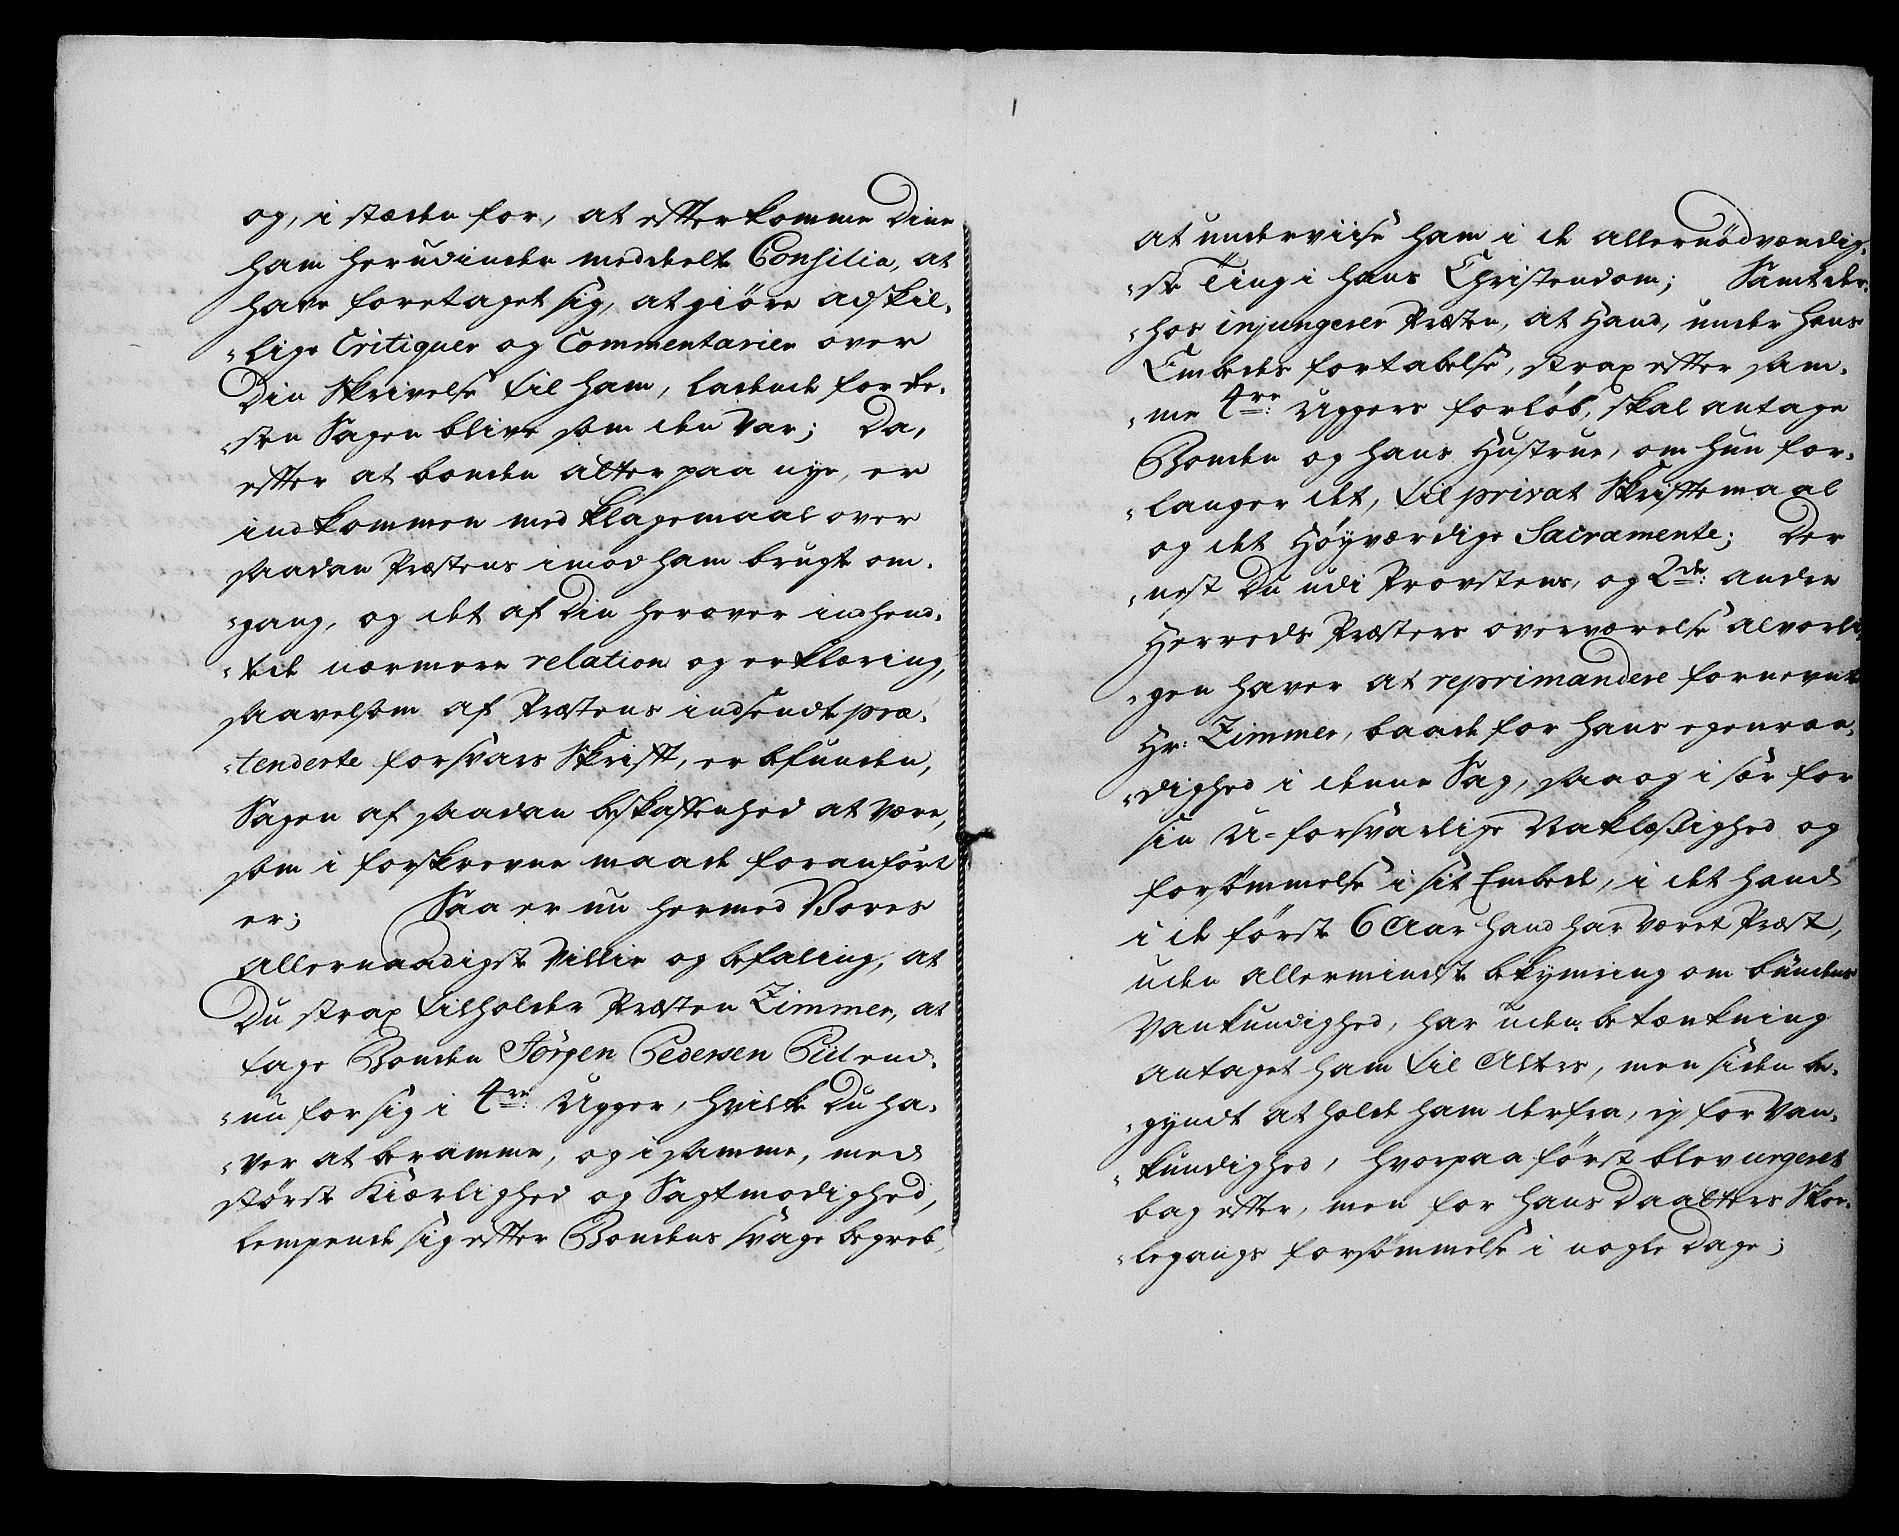 og, i stæden for, at efterkomme Dine
ham herudinden meddeelte Consilia, at
have foretaget sig, at giöre adskil-
-lige Critiquer og Commentarier over
Din Skrivelse til ham, ladende for Re-
-sten Sagen blive som den var; Da,
efter at bonden atter paa nye, er
indkommen med klagemaal over
saadan Præstens imod ham brugte om-
-gang, og det af Din herover indhend-
-tede nærmere relation og erklæring,
saavelsom af Præstens indsendte præ-
-tenderte forsvars Skrift, er befunden,
Sagen af saadan beskaffenhed at være,
som i forskrevne maade foranfört
er; Saa er nu hermed Vores
allernaadigste Villie og befaling, at
Du strax tilholder Præsten Zimmer, at
tage Bonden Jörgen Pedersen Piil end-
-nu for sig i 4re: Uger, hvilke Du ha-
-ver at beramme, og i samme, med
störste Kiærlighed og Sagtmodighed,
lempende sig efter Bondens svage begreb,
1
at underviise ham i de allernödvendig-
-ste Ting i hans Christendom; Samt der-
-hos injungerer Præsten, at Hand, under hans
Embeds fortabelse, strax efter sam-
-me 4re: Ugers forlöb, skal antage
Bonden og hans Hustrue, om hun for-
-langer det, til privat Skriftemaal
og det Höyværdige Sacramente; Der
-nest Du udi Provstens, og 2de: andre
Herreds Præsters overværelse alvorli-
-gen haver at reprimandere fornevnte
Hr: Zimmer, baade for hans egenraa-
-dighed i denne Sag, saa og i sær for
sin U-forsvarlige Naklæßighed og
forsömmelse i sit Embede, i det hand
i de förste 6 Aar hand har været Præst,
uden allermindste bekymring om bondens
Vankundighed, har uden betænkning
antaget ham til Alters, men siden be-
-gyndt at holde ham derfra, ey for Van-
-kundighed, hvorpaa först blev urgeret
bag efter, men for hans Daatters Skoe-
-legangs forsömmelse i nogle Dage;